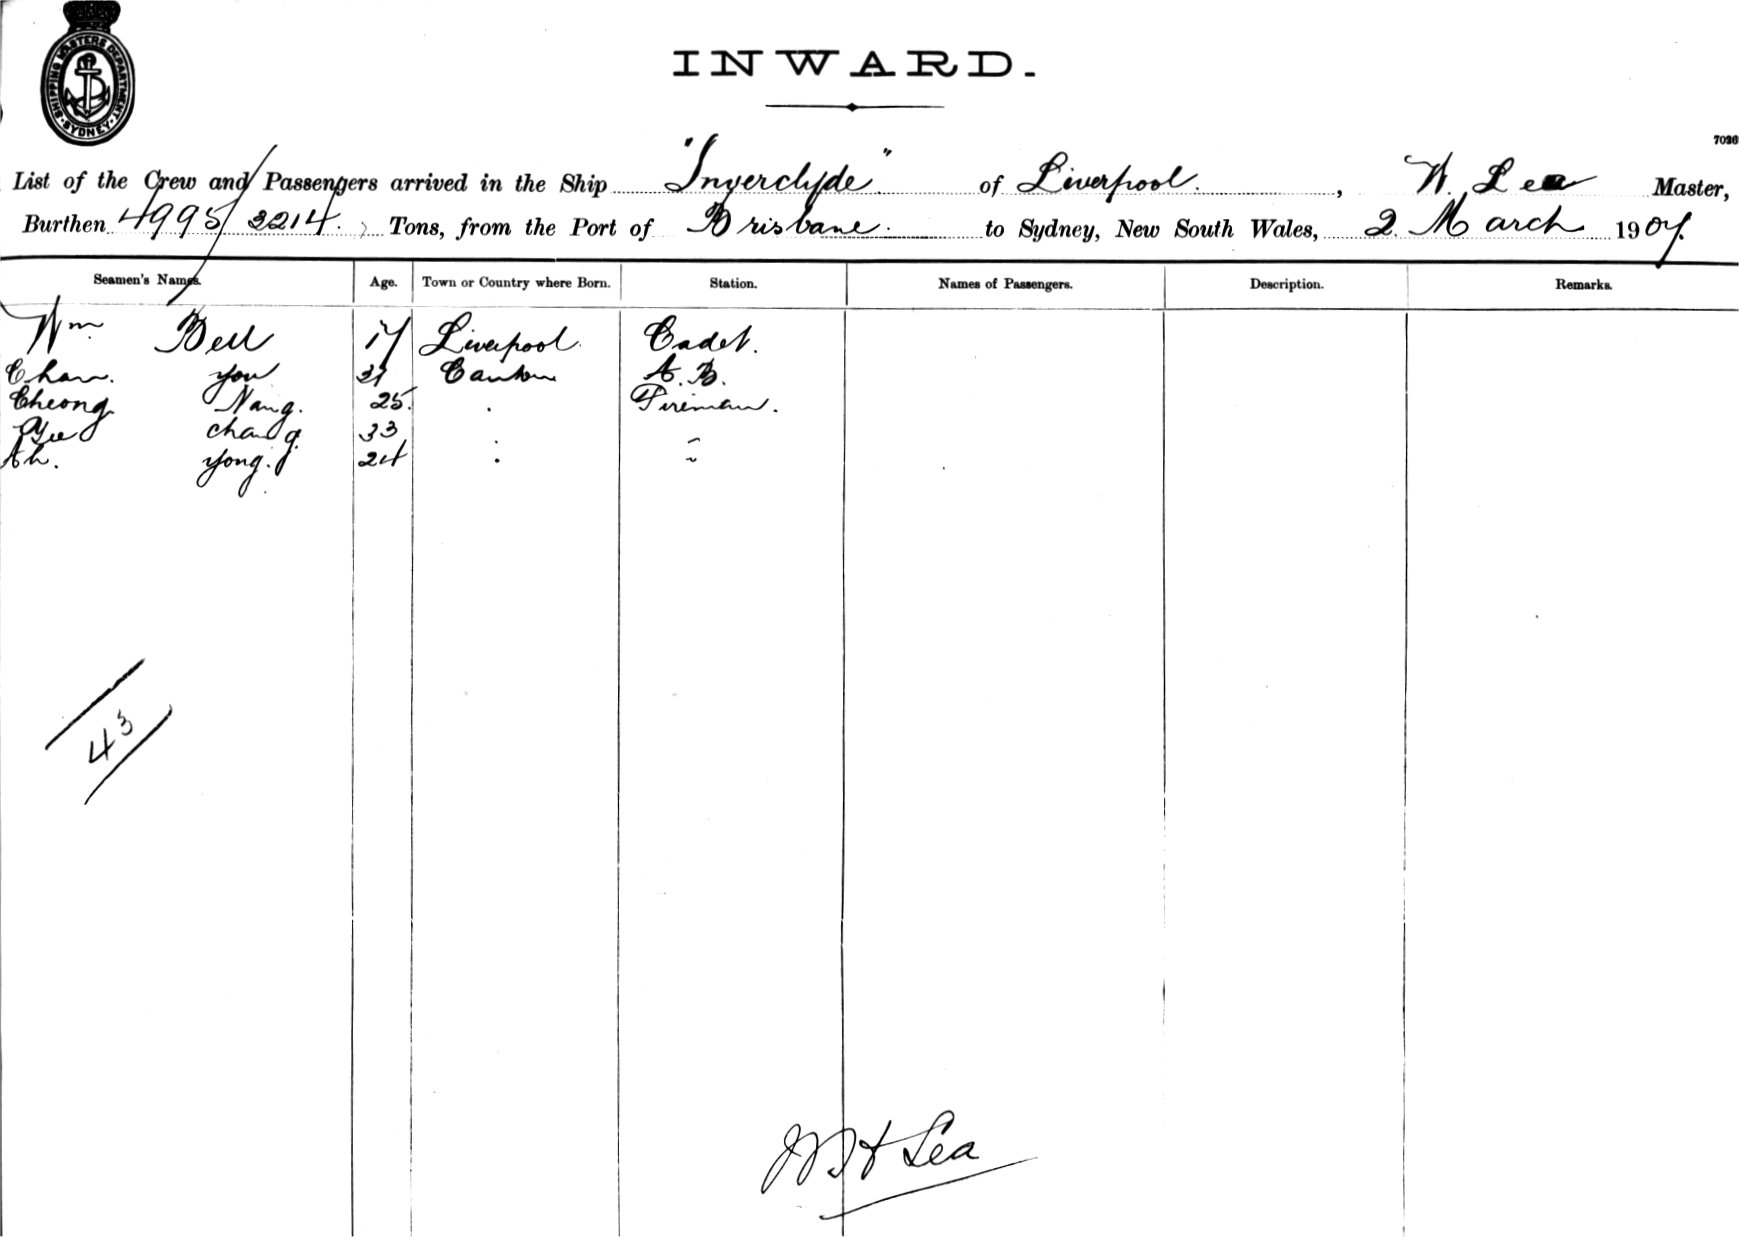 SHIPPING MASTERS DEPARTMENT
SYDNEY
INWARD.
7026
List of the Crew and Passengers arrived in the Ship "Inverclyde" of Liverpool, W. Lea Master,
Burthen 4995/3214 Tons, from the Port of Brisbane to Sydney, New South Wales, 2 March 1907.
Seamen's Names. Age. Town or Country where Born. Station. Names of Passengers. Description. Remarks.
Wm Bell 17 Liverpool Cadet.
Chan. you 31 Canton A.B.
Cheong Nang. 25. " Fireman.
Yee chang 33 " "
Ah. yong. 24 " "
43
W H Lea